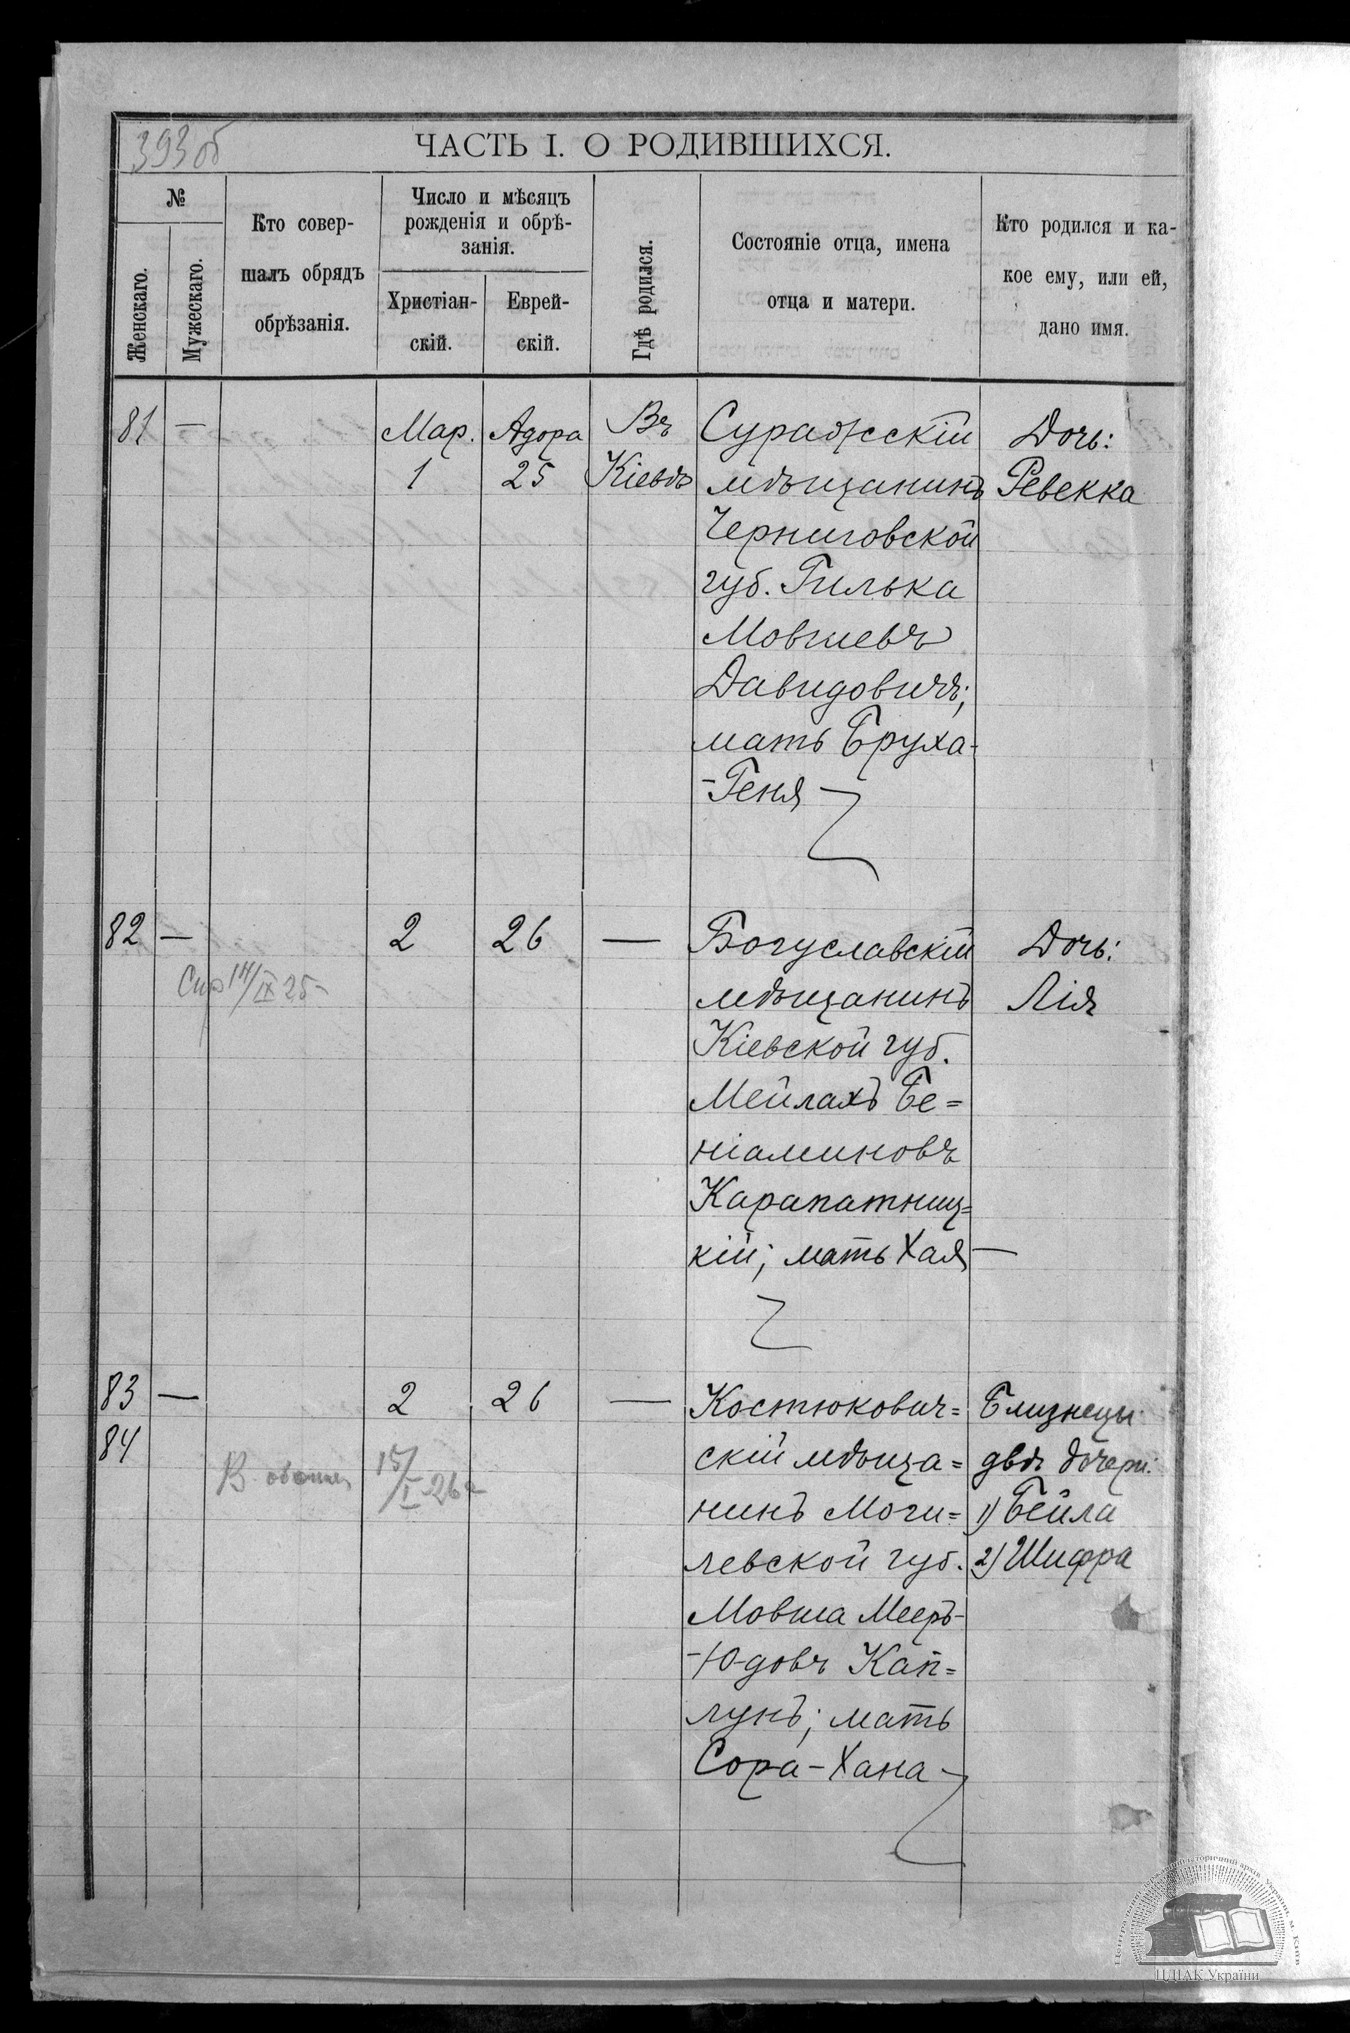 393об
ЧАСТЬ I. О РОДИВШИХСЯ.
№
Женскаго.
Мужескаго.
Кто совер-
шалъ обрядъ
обрѣзанія.
Число и мѣсяцъ
рожденія и обрѣ-
занія.
Христіан-
скій.
Еврей-
скій.
Гдѣ родился.
Состояніе отца, имена
отца и матери.
Кто родился и ка-
кое ему, или ей,
дано имя.
81 —
Мар.
1
Адора
25
Въ
Кіевѣ
Суражскій
мѣщанинъ
Черниговской
губ. Гилька
Мовшевъ
Давидовичъ;
мать Бруха-
-Геня —
Дочь:
Ревекка
82 —
14/IX 25
2
26
—
Богуславскій
мѣщанинъ
Кіевской губ.
Мейлахъ Бе=
ніаминовъ
Карапатниц=
кій; мать Хая —
Дочь:
Лія
83 —
84
В
15/I 26
2
26
—
Костюкович=
скій мѣща=
нинъ Моги=
левской губ.
Мовша Мееръ-
-Юдовъ Кап=
лунъ; мать
Сора-Хана —
Близнецы
двѣ дочери:
1) Бейла
2) Шифра
ЦДІАК України